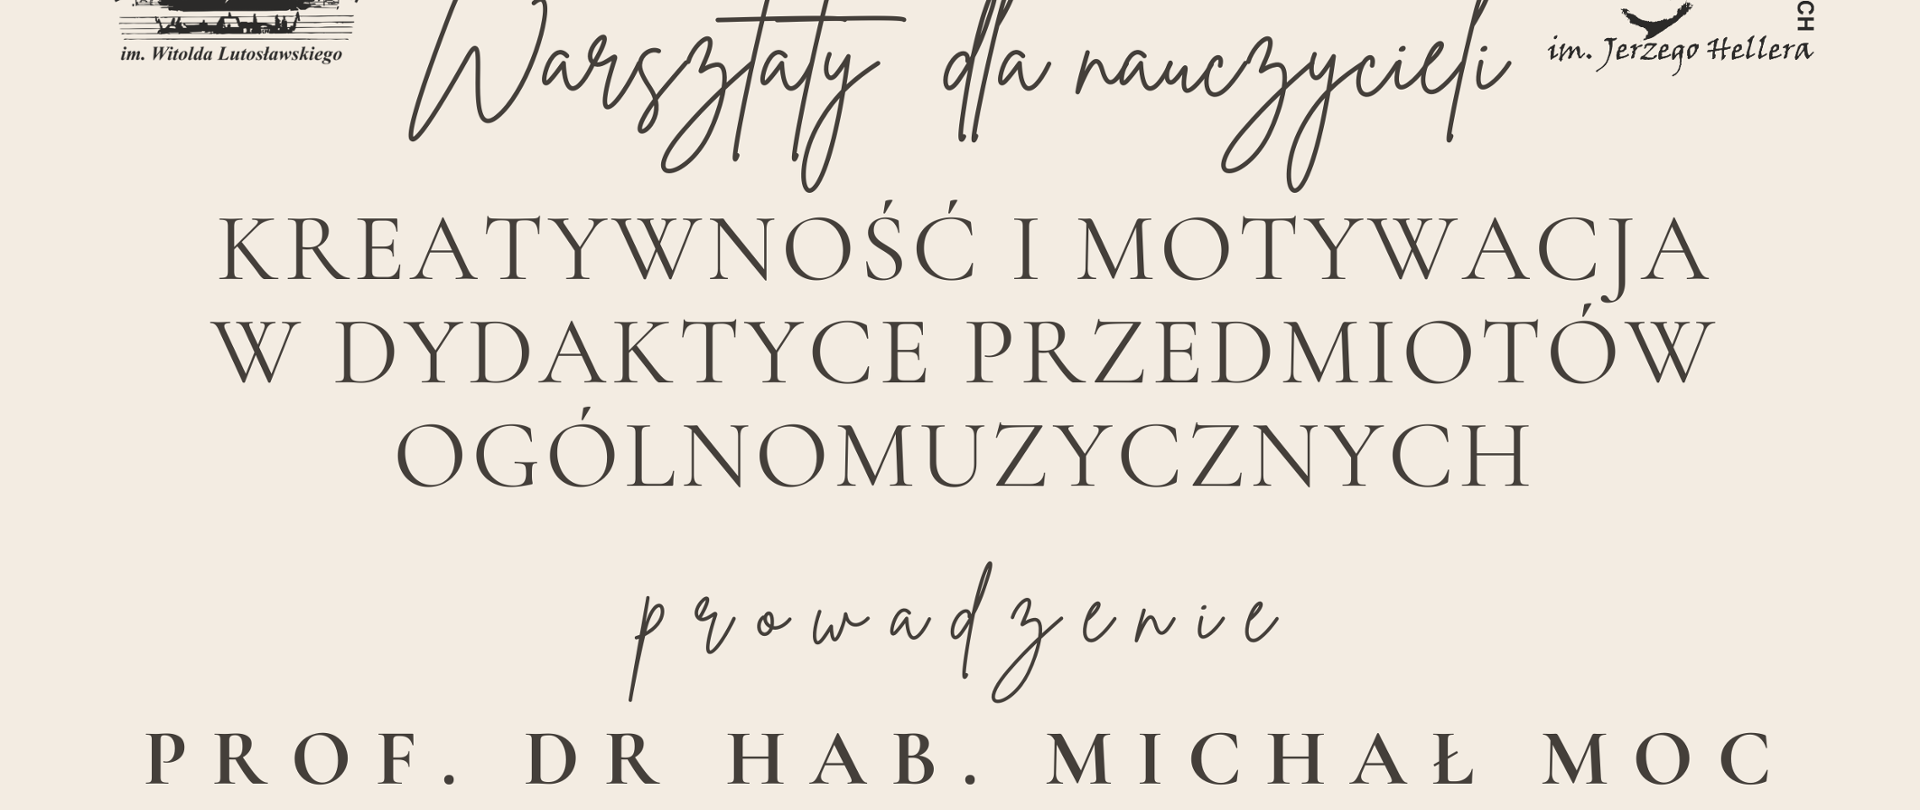 im. Witolda Lutosławskiego
Warsztaty dla nauczycieli
CH
im. Jerzego Hellera
KREATYWNOŚĆ I MOTYWACJA
W DYDAKTYCE PRZEDMIOTÓW
OGÓLNOMUZYCZNYCH
prowadzenie
PROF. DR HAB. MICHAŁ MOC